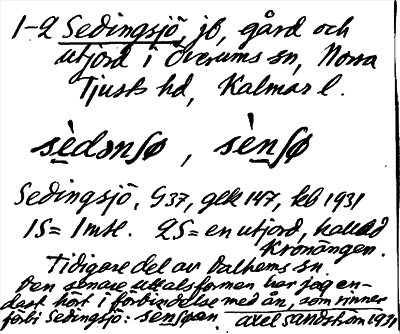 1-2 Sedingsjö, jb, gård och
utjord i Överums sn, Norra
Tjusts hd, Kalmar l.
sèdənʃø, sènʃø
Sedingsjö, G37, gek 147, kb 1931
1S = 1 mtl. 2S = en utjord, kallad
Kronängen.
Tidigare del av Dalhems sn.
Den senare uttalsformen har jag en-
dast hört i förbindelse med ån, som rinner
förbi Sedingsjö: senʃøan. Axel Sandström 1931